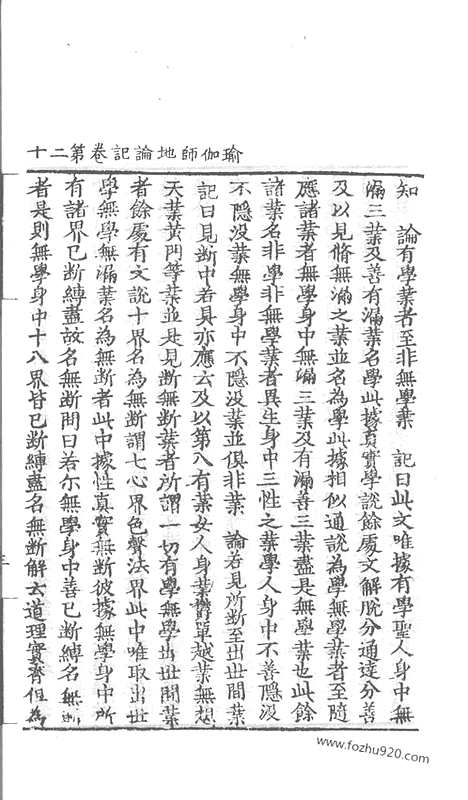 瑜伽師地論記卷第二十
知　論有學業者至非無學業　記曰此文唯據有學聖人身中無
漏三業及善有漏業名學此據真實學說餘處文解脫分通達分善
及以見脩無漏之業並名為學此據相似通說為學無學業者至隨
應諸業者無學身中無漏三業及有漏善三業盡是無學業也此餘
諸業名非學非無學業者異生身中三性之業學人身中不善隱没
不隱没業無學身中不隱没業並俱非業　論若見所断至出世間業
記曰見断中若具亦應云及以第八有業女人身業欝單越業無想
天業黃門等業並是見断無断業者所謂一切有學無學出世間業
者餘處有文說十界名為無断謂七心界色聲法界此中唯取出世
學無學無漏業名為無断者此中據性真實無断彼據無學身中所
有諸界已断縛盡故名無断問曰若尓無學身中善已断縛名無断
者是則無學身中十八界皆已断縛盡名無断解云道理實齊但為
www.fozhu920.com